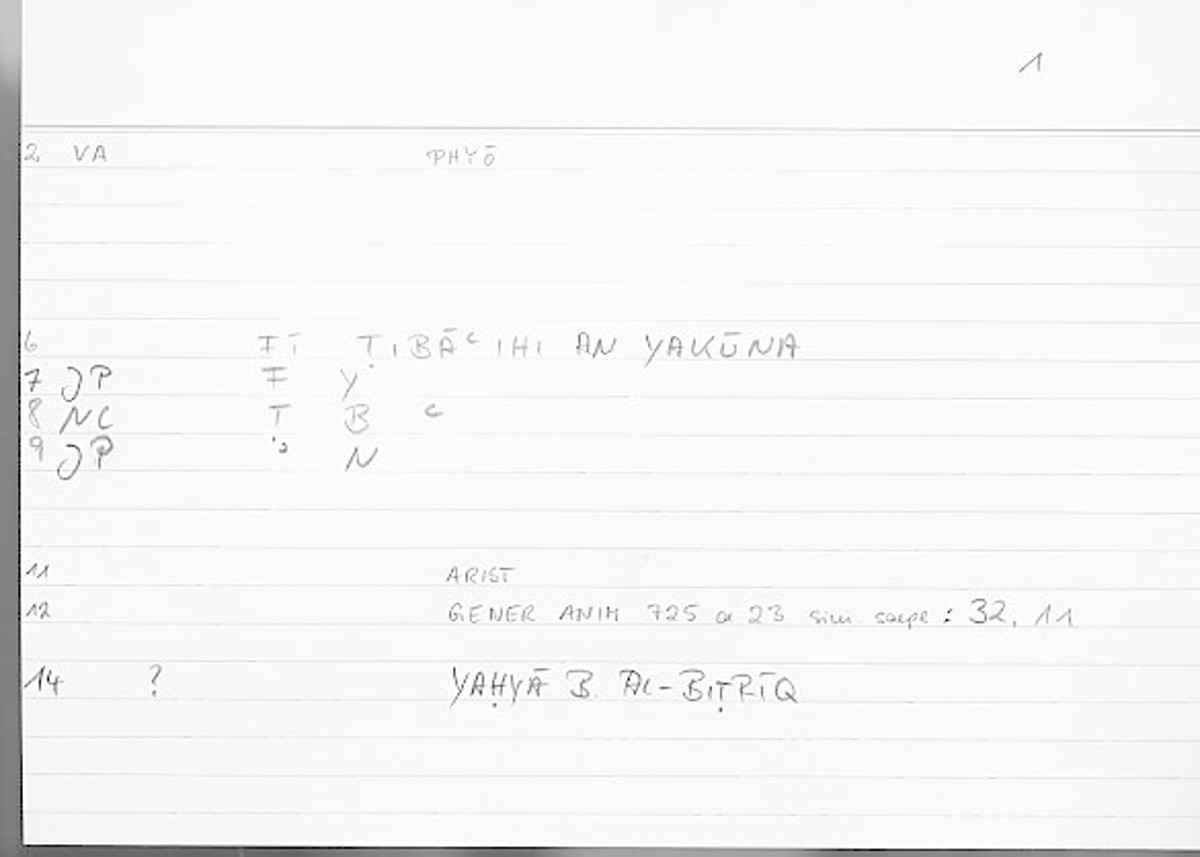 1
2 VA PHYŌ
6 FĪ ṬIBĀʿIHI AN YAKŪNA
7 JP F Y
8 NC T B ʿ
9 JP N
11 ARIST
12 GENER ANIM 725 a 23 sim saepe : 32, 11
14 ? YAḤYĀ B. AL-BIṬRĪQ